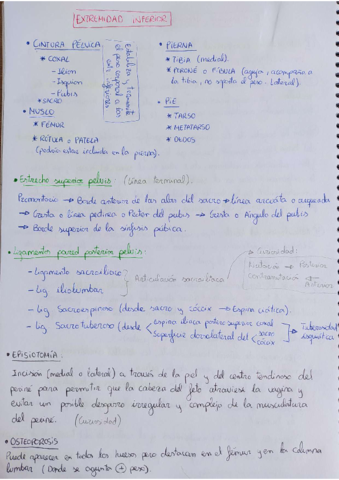 EXTREMIDAD INFERIOR
• CINTURA PÉLVICA
* COXAL
- Ilion
- Isquion
- Pubis
* SACRO
Estabiliza y transmite
el peso corporal a las
• MUSLO
* FÉMUR
* RÓTULA o PATELA
(podría estar incluida en la pierna).
• PIERNA
* TIBIA (medial).
* PERONÉ o FÍBULA (aguja, acompaña a
la tibia, no soporta el peso. Lateral).
• PIE
* TARSO
* METATARSO
* DEDOS
• Estrecho superior pelvis: (Línea terminal).
Promontorio → Borde anterior de las alas del sacro → línea arcuata o arqueada
→ Cresta o línea pectínea o Pecten del pubis → Cresta o Ángulo del pubis
→ Borde superior de la sínfisis púbica.
• Ligamentos pared posterior pelvis:
- Ligamento sacroilíaco
- Lig iliolumbar
Articulación sacroilíaca
→ Curiosidad:
Nutación → Posterior
Contranutación →
- Lig Sacroespinoso (desde sacro y cóccix → Espina ciática).
- Lig Sacrotuberoso (desde Espina ilíaca postero superior coxal
Superficie dorsolateral del sacro
cóccix
→ Tuberosidad
isquiática
• EPISIOTOMÍA:
Incisión (medial o lateral) a través de la piel y del centro tendinoso del
periné para permitir que la cabeza del feto atraviese la vagina y
evitar un posible desgarro irregular y complejo de la musculatura
del periné. (Curiosidad)
• OSTEOPOROSIS
Puede aparecer en todos los huesos pero destacan en el fémur y en la columna
lumbar (Donde se aguanta (+) peso).